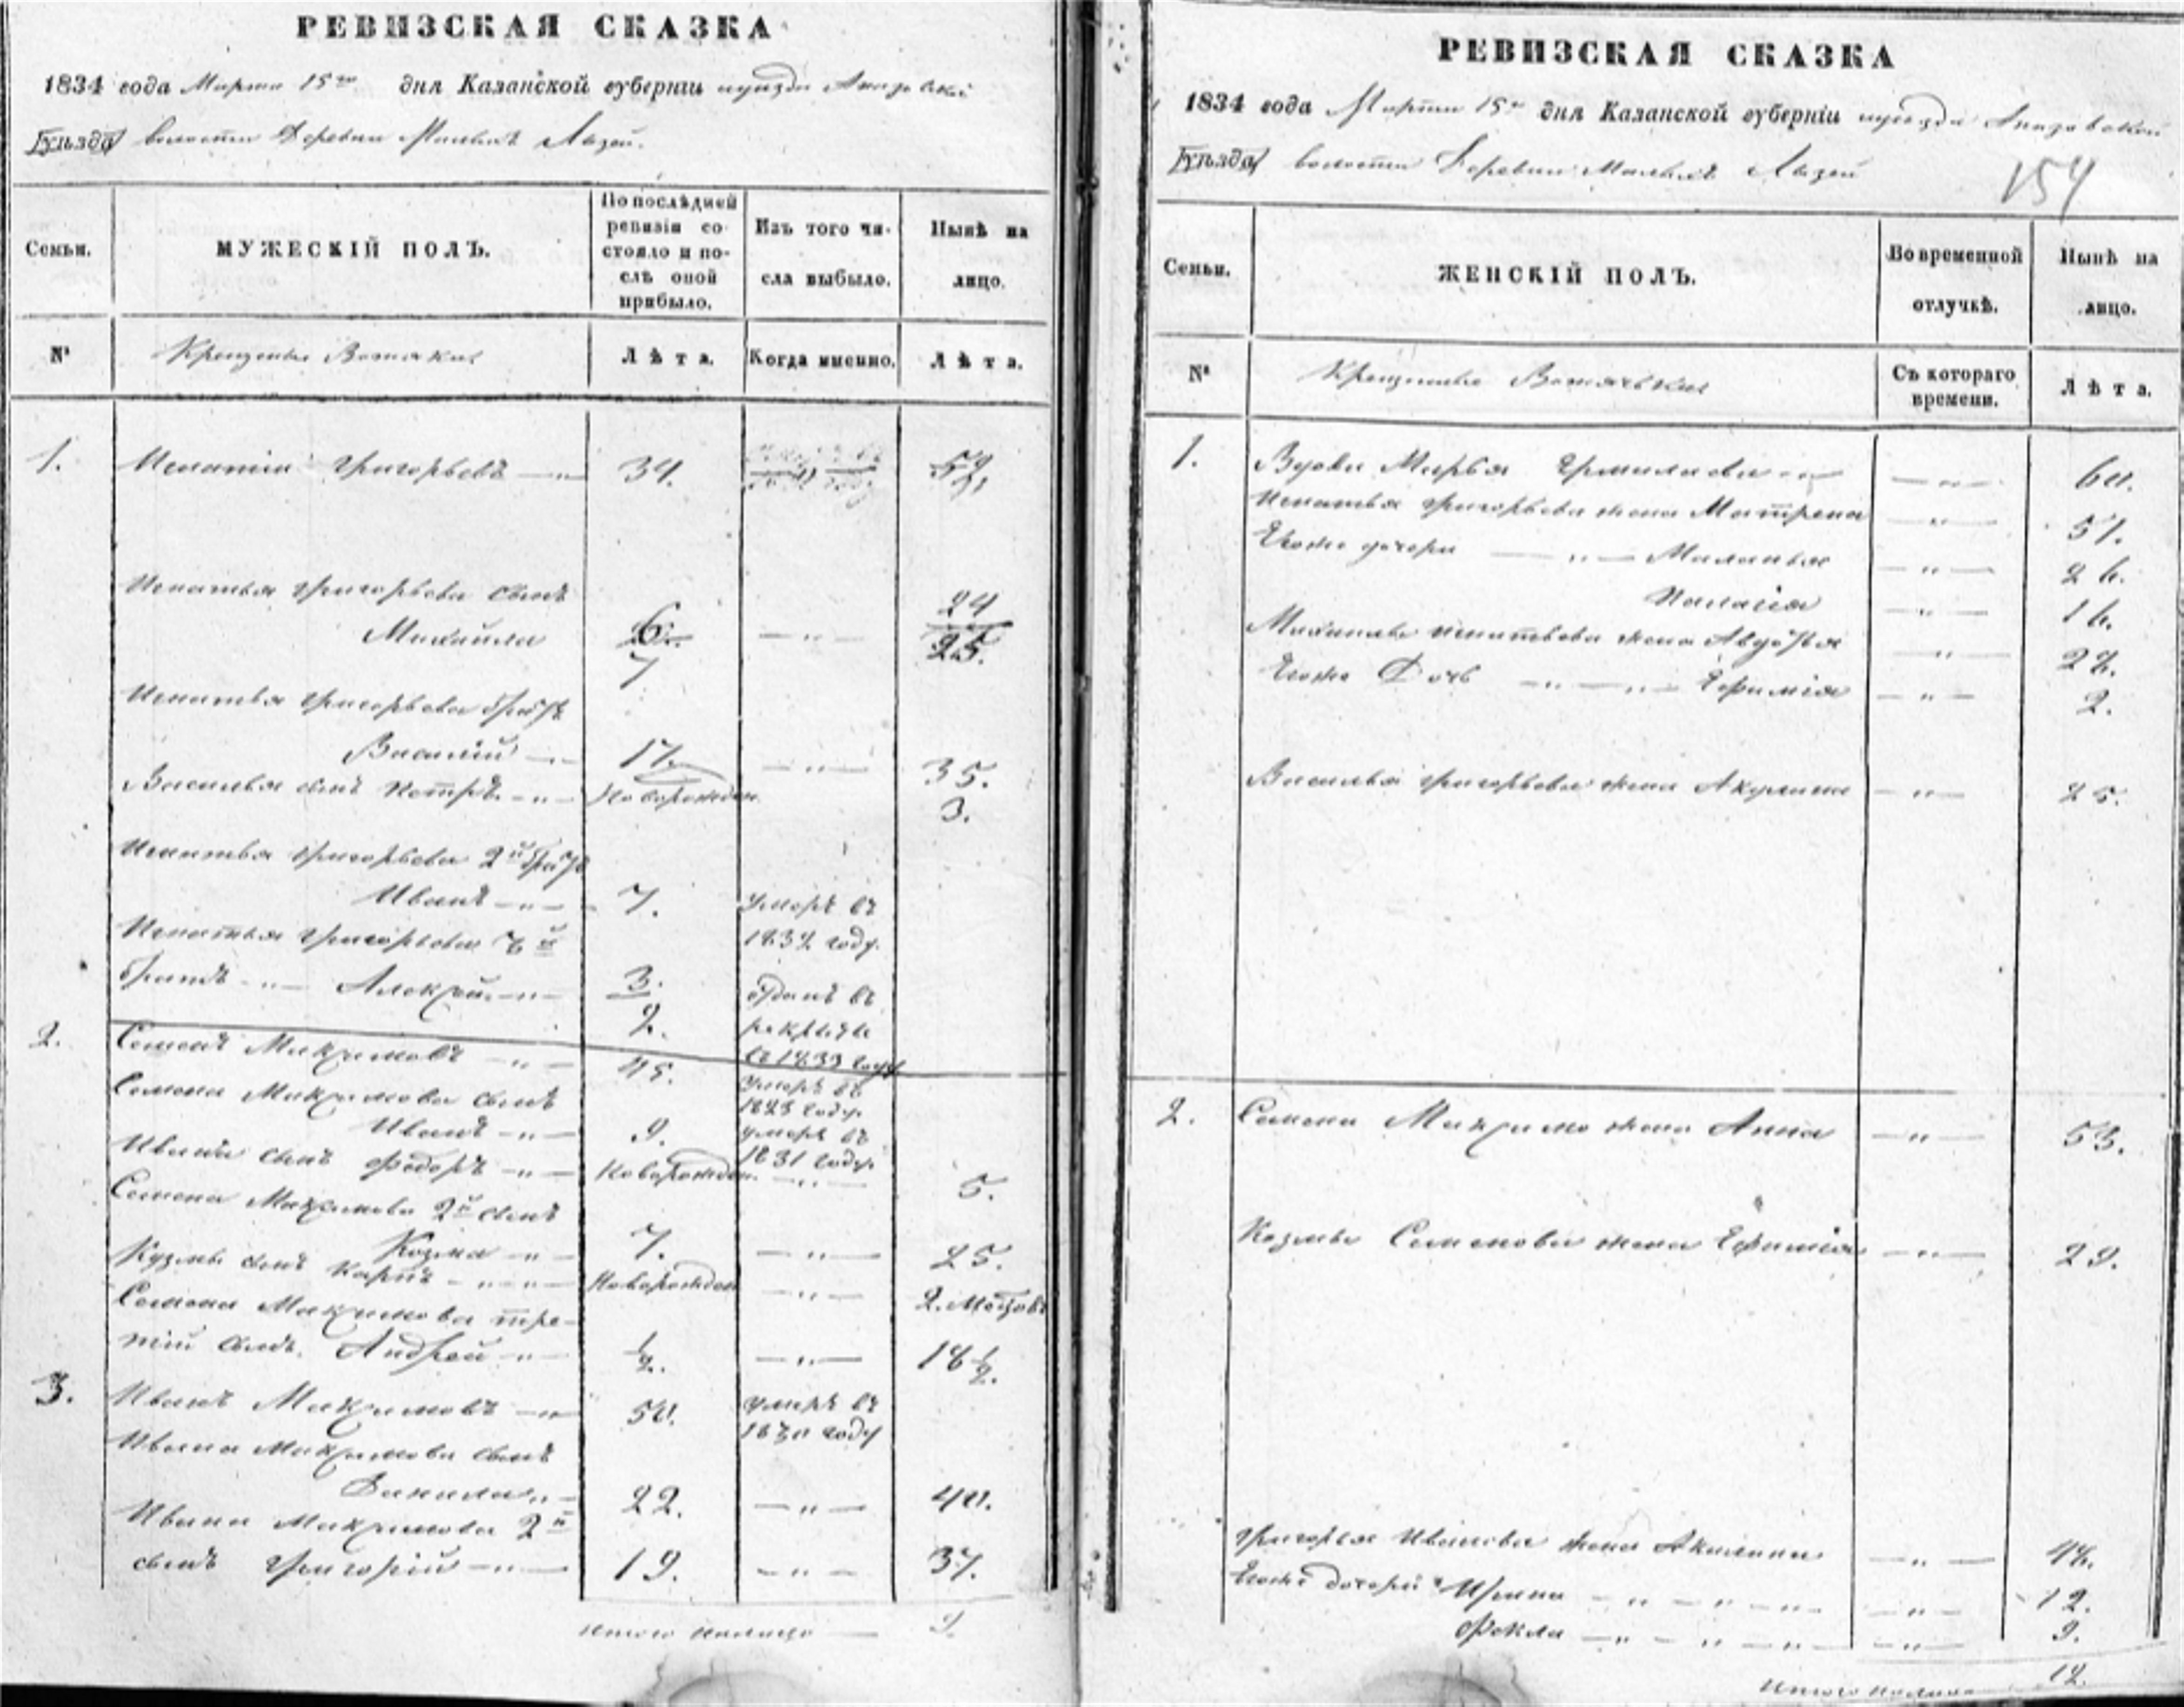 РЕВИЗСКАЯ СКАЗКА
1834 года Марта 15го дня Казанской губерніи уѣзда
Уѣзда волости Деревни Малыхъ Лызей.
Семьи.
МУЖЕСКІЙ ПОЛЪ.
По послѣдней ревизіи состояло и послѣ оной прибыло.
Изъ того числа выбыло.
Нынѣ на лицо.
№
Крещеные Вотяки
Лѣта.
Когда именно.
Лѣта.
1. Игнатій Григорьевъ 34. 52,
Игнатья Григорьева сынъ 24
Михайла 6. 25.
7
Игнатья Григорьева братъ
Василій 17. 35.
Василья сынъ Петръ Новорожден. 3.
Игнатья Григорьева 2й братъ
Иванъ 7. умеръ въ
1832 году.
Игнатья Григорьева 3й
братъ Алексѣй 3. отданъ въ
2. рекруты
въ 1833 году
2. Семенъ Максимовъ 45. умеръ въ
1823 году.
Семена Максимова сынъ
Иванъ 9. умеръ въ
1831 году.
Ивана сынъ Федоръ Новорожден. 5.
Семена Максимова 2й сынъ
Козма 7. 25.
Кузмы сынъ Карпъ Новорожден 2. Месѣцовъ
Семена Максимова тре-
тій сынъ Андрей ½. 18½.
3. Иванъ Максимовъ 50. умеръ въ
1830 году
Ивана Максимова сынъ
Данила 22. 40.
Ивана Максимова 2й
сынъ Григорій 19. 37.
Итого налицо 9.
РЕВИЗСКАЯ СКАЗКА
1834 года Марта 15го дня Казанской губерніи уѣзда
Уѣзда волости Деревни Малыхъ Лызей
154
Семьи.
ЖЕНСКІЙ ПОЛЪ.
Во временной отлучкѣ.
Нынѣ на лицо.
№
Крещеные Вотячьки
Съ котораго времени.
Лѣта.
1. Вдова Марья Ермилаева 60.
Игнатья Григорьева жена Матрена 51.
Егоже дочери Маланья 26.
Палагія 16.
Михаилы Игнатьева жена Авдотья 28.
Егоже Дочь Ефимія 2.
Василья Григорьева жена Акулина 25.
2. Семена Максимо жена Анна 53.
Козмы Семенова жена Ефимія 29.
Григорья Иванова жена Акилина
Егоже дочери Ирина 12.
Фекла 9.
Итого налицо 12.